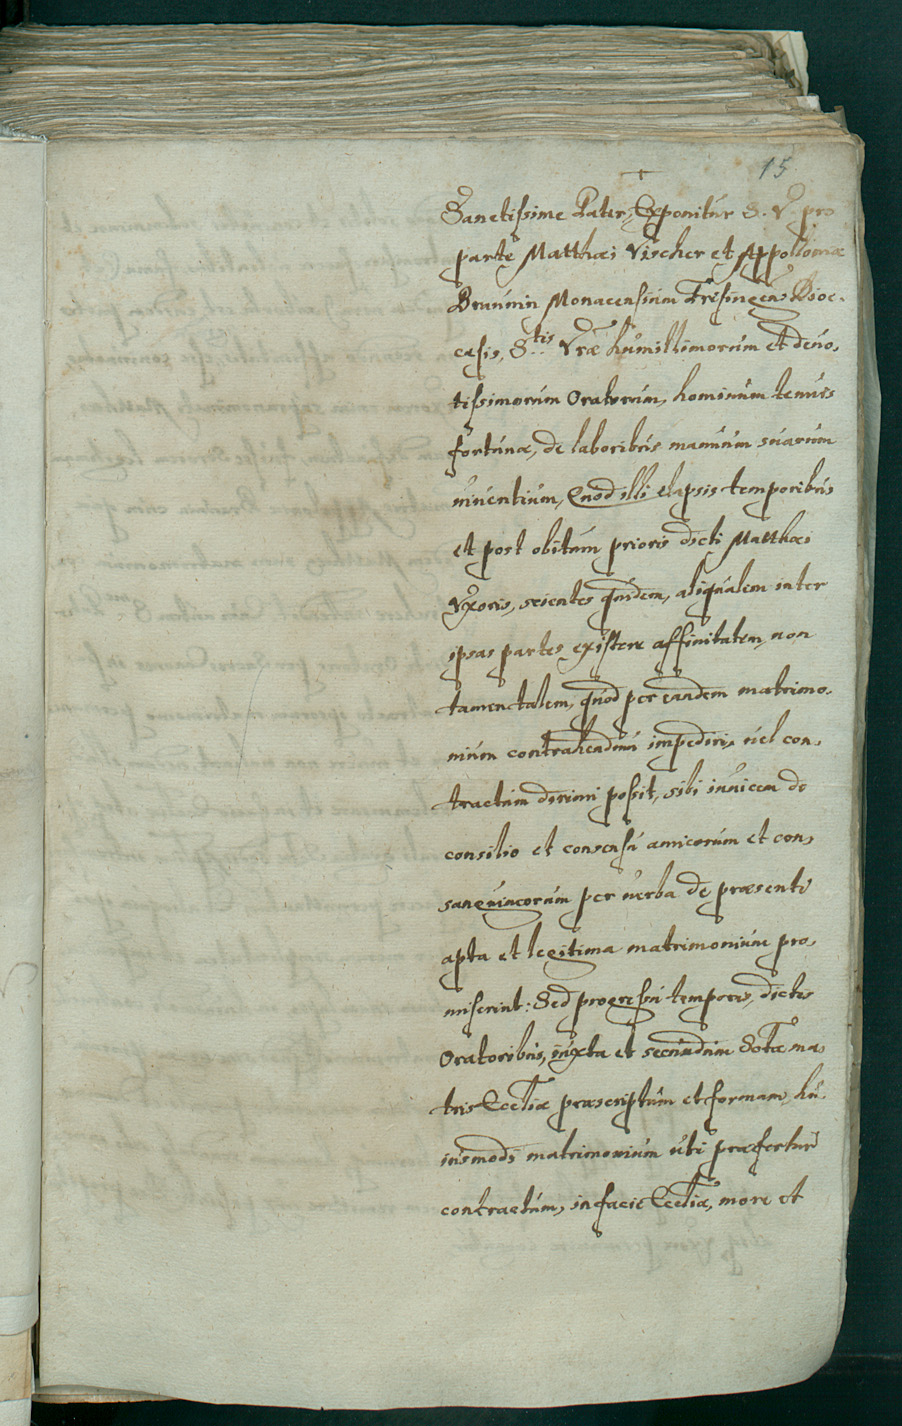 15
Sanctissime Pater, Exponitur S. V. pro
parte Matthæi Vischer et Appolloniæ
Brunnin Monacensium Frisingen. Dioe-
cesis, S.tis Vræ humillimorum et deuo-
tissimorum Oratorum, hominum tenuis
fortunæ, de laboribus manuum suarum
uiuentium, Quod illi elapsis temporibus
et post obitum prioris dicti Matthæi
Vxoris, scientes quidem, aliqualem inter
ipsas partes existere affinitatem, non
tamen talem, quod per eandem matrimo-
nium contrahendum impediri, uel con-
tractum dirimi possit, sibi inuicem de
consilio et consensu amicorum et con-
sanguineorum per uerba de præsenti
apta et legitima matrimonium pro-
miserint: Sed progressu temporis, dictis
Oratoribus, iuxta et secundum Sctæ ma-
tris Eccliæ præscriptum et formam, hu-
iusmodi matrimonium uti præfertur
contractum, in facie Eccliæ, more et